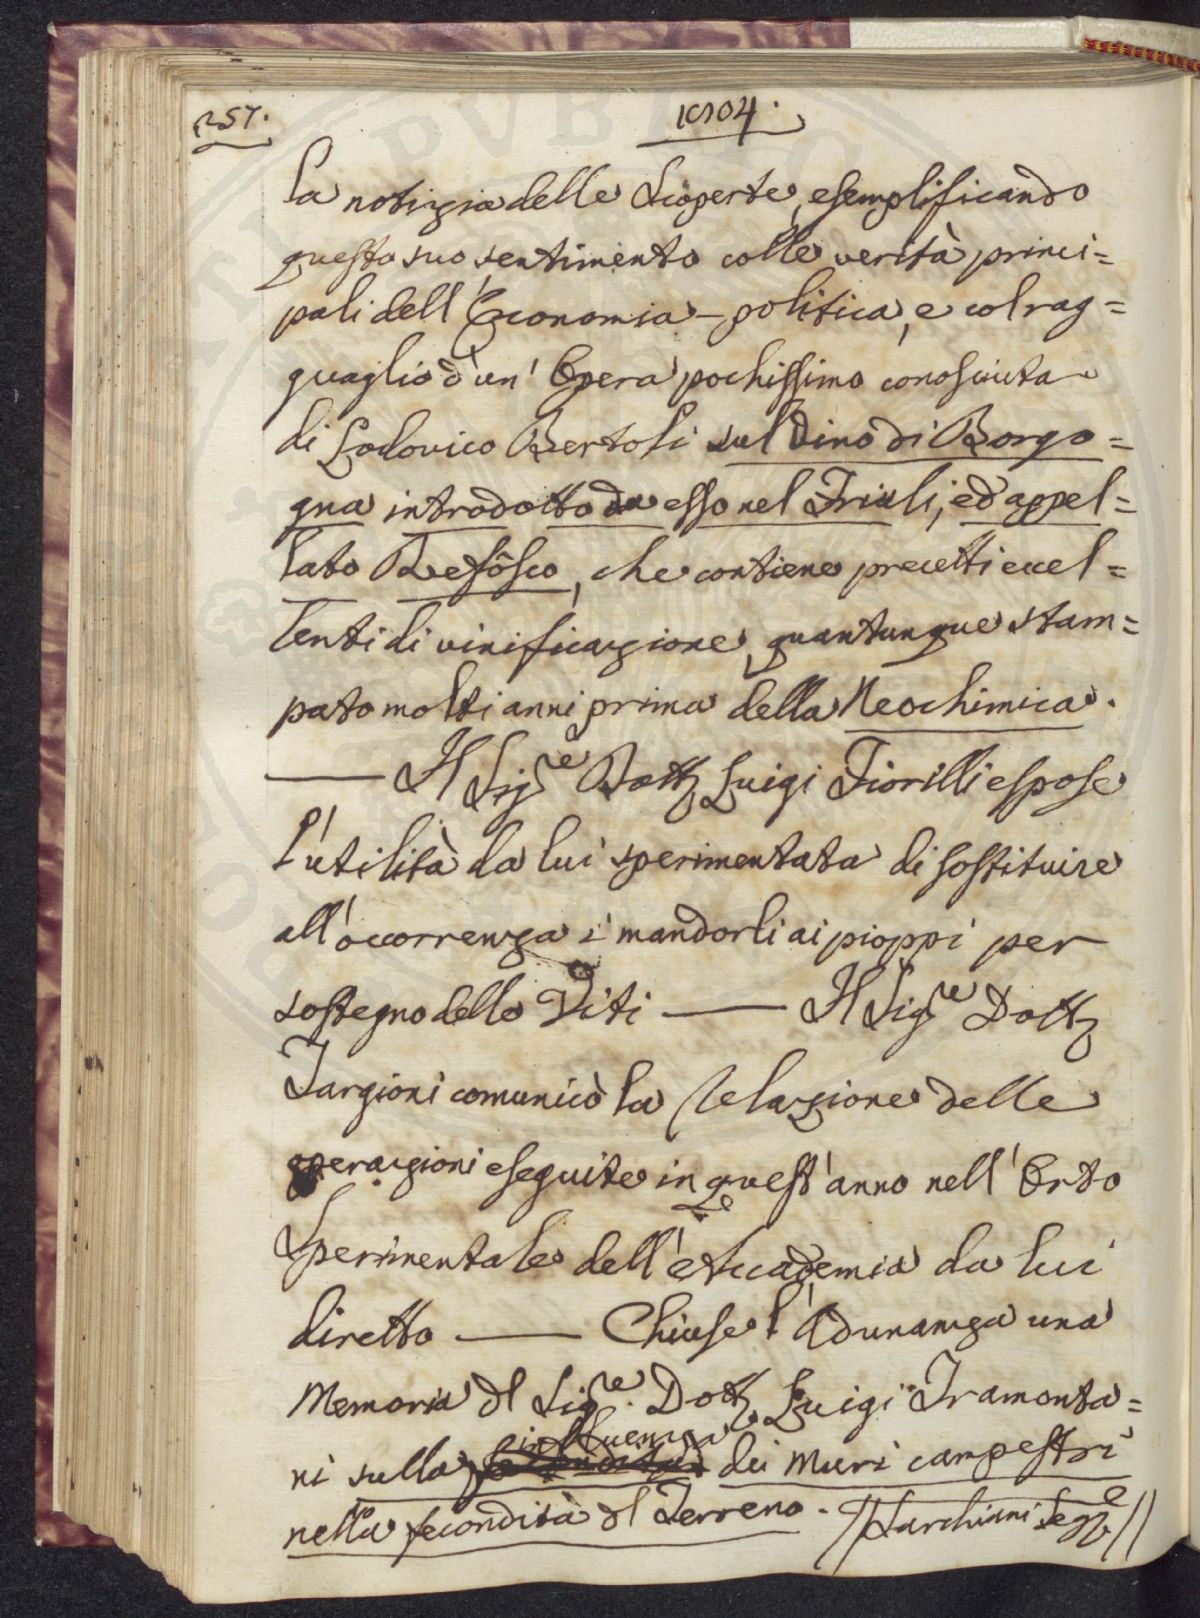 257.
1804.
la notizia delle Scoperte, esemplificando
questo suo sentimento colle verità princi=
pali dell'Economia-politica, e col rag=
guaglio d'un' Opera pochissimo conosciuta
di Lodovico Bertoli sul Vino di Borgo=
gna introdotto da esso nel Friuli, ed appel=
lato Refôsco, che contiene precetti eccel=
lenti di vinificazione, quantunque stam=
pato molti anni prima della Neochimica.
—— Il Sig.re Dott. Luigi Fiorilli espose
l'utilità da lui sperimentata di sostituire
all'occorrenza i mandorli ai pioppi per
sostegno delle Viti —— Il Sig.re Dott.
Targioni comunicò la Relazione delle
operazioni eseguite in quest'anno nell'Orto
Sperimentale dell'Accademia da lui
diretto —— Chiuse l'Adunanza una
Memoria del Sig.re Dott. Luigi Tramonta=
ni sulla influenza dei Muri campestri
nella fecondità del Terreno. // Sarchiani Seg.e //